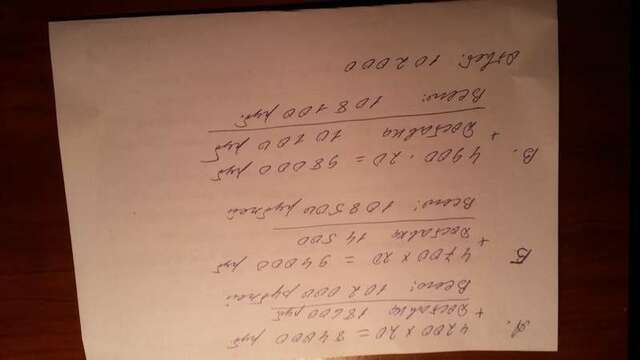 А. 4200 x 20 = 84000 руб
+ Доставка руб
Всего: 102 000 рублей
Б 4700 x 20 = 94000 руб
+ Доставка 14 500
Всего: 108 500 рублей
В. 4900 . 20 = 98000 руб
+ Доставка 10 100 руб
Всего: 108 100 руб.
Ответ: 102000